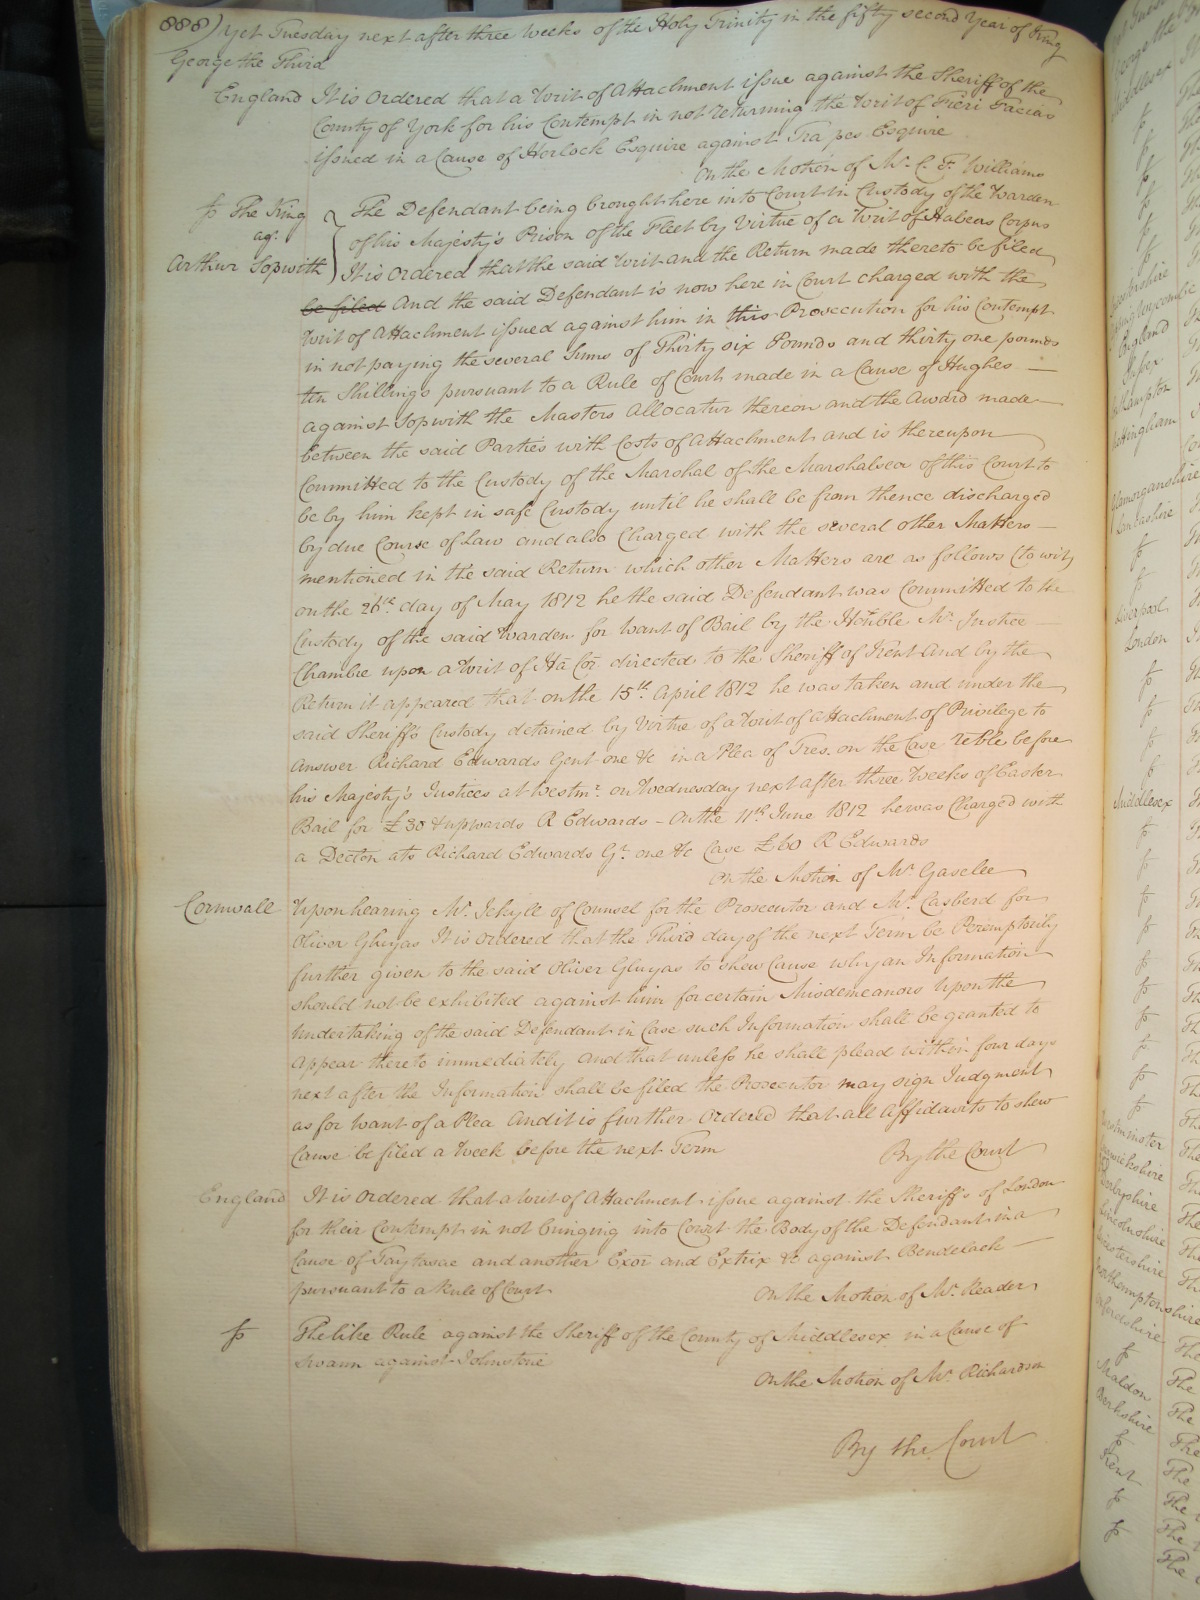 888) Yet Tuesday next after three Weeks of the Holy Trinity in the fifty second Year of King
George the Third
England It is Ordered that a Writ of Attachment issue against the Sheriff of the
County of York for his Contempt in not returning the Writ of Fieri Facias
issued in a Cause of Horlock Esquire against Trapes Esquire
On the Motion of Mr. C. F. Williams
The King
agt.
Arthur Sopwith
The Defendant being brought here into Court in Custody of the Warden
of his Majesty's Prison of the Fleet by Virtue of a Writ of Habeas Corpus
It is Ordered that the said Writ and the Return made thereto be filed
be filed And the said Defendant is now here in Court charged with the
Writ of Attachment issued against him in this Prosecution for his Contempt
in not paying the several Sums of Thirty six Pounds and thirty one pounds
ten Shillings pursuant to a Rule of Court made in a Cause of Hughes —
against Sopwith the Masters Allocatur thereon and the Award made
between the said Parties with Costs of Attachment and is thereupon
Committed to the Custody of the Marshal of the Marshalsea of this Court to
be by him kept in safe Custody until he shall be from thence discharged
by due Course of Law and also Charged with the several other Matters —
mentioned in the said Return which other Matters are as follows (to wit)
on the 26th. day of May 1812 he the said Defendant was Committed to the
Custody of the said Warden for want of Bail by the Honble Mr. Justice —
Chambre upon a Writ of Ha Cor directed to the Sheriff of Kent And by the
Return it appeared that on the 15th. April 1812 he was taken and under the
said Sheriffs Custody detained by Virtue of a Writ of Attachment of Privilege to
Answer Richard Edwards Gent one &c in a Plea of Tres. on the Case reble before
his Majesty's Justices at Westmr. on Wednesday next after three Weeks of Easter
Bail for £30 & upwards R Edwards – On the 11th June 1812 he was Charged with
a Decton ats Richard Edwards Gt. one &c Case £60 R Edwards
On the Motion of Mr Gaselee
Cornwall Upon hearing Mr. Jekyll of Counsel for the Prosecutor and Mr. Casberd for
Oliver Gluyas It is Ordered that the Third day of the next Term be Peremptorily
further given to the said Oliver Gluyas to shew Cause why an Information
should not be exhibited against him for certain Misdemeanors Upon the
Undertaking of the said Defendant in Case such Information shall be granted to
Appear thereto immediately And that unless he shall plead within four days
next after the Information shall be filed the Prosecutor may sign Judgment
as for want of a Plea And it is further Ordered that all Affidavits to shew
Cause be filed a Week before the next Term
By the Court
England It is Ordered that a Writ of Attachment issue against the Sheriffs of London
for their Contempt in not bringing into Court the Body of the Defendant in a
Cause of and another Exor and Extrix &c against Bendelack
pursuant to a Rule of Court
On the Motion of Mr. Reader
The like Rule against the Sheriff of the County of Middlesex in a Cause of
Swann against Johnstone
On the Motion of Mr. Richardson
By the Court
England
Sussex
Glamorganshire
Lancashire
Liverpool
London
Middlesex
Westminster
Derbyshire
Lincolnshire
Northamptonshire
Maldon
Berkshire
Kent